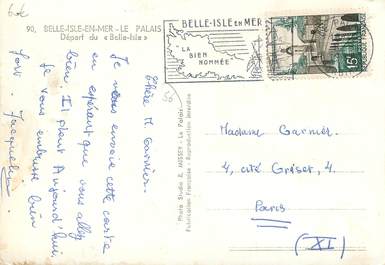 90, BELLE-ISLE-EN-MER - LE PALAIS
Départ du « Belle-Isle »
BELLE-ISLE EN MER
"LA
BIEN
NOMMÉE"
15F
Chère M. Garnier.
Je vous envoie cette carte
en espérant que vous allez
bien. Il pleut Aujourd'hui.
Je vous embrasse bien
fort. Jacqueline
Photo Studio R. MISSEY - Le Palais
Fabrication Française - Reproduction interdite
Madame Garnier.
4, cité Griset, 4
Paris
(XI)